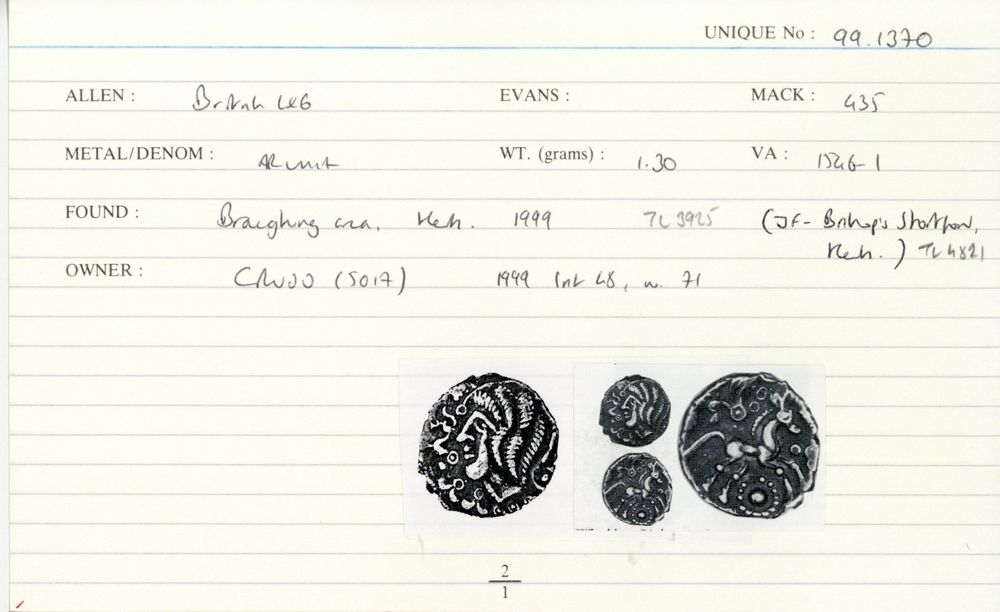 UNIQUE No : 99.1370
ALLEN : British LX6 EVANS : MACK : 435
METAL/DENOM : AR unit WT. (grams) : 1.30 VA : 1546-1
FOUND : Braughing area, Herts. 1999 TL 3925 (JF - Bishop's Stortford,
Herts.) TL 4821
OWNER : (5017) 1999 68, n. 71
2
1